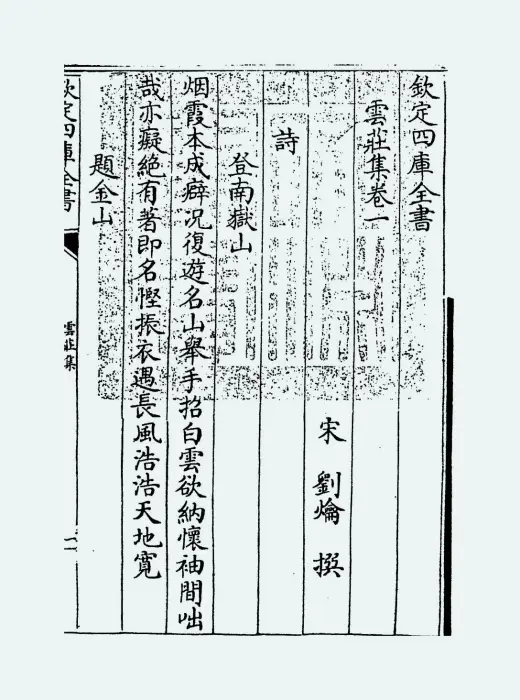 欽定四庫全書
雲莊集卷一
宋 劉爚 撰
詩
登南嶽山
烟霞本成癖况復遊名山舉手招白雲欲納懷袖間咄
哉亦癡絶有著即名慳振衣遇長風浩浩天地寛
題金山
欽定四庫全書
雲莊集
一